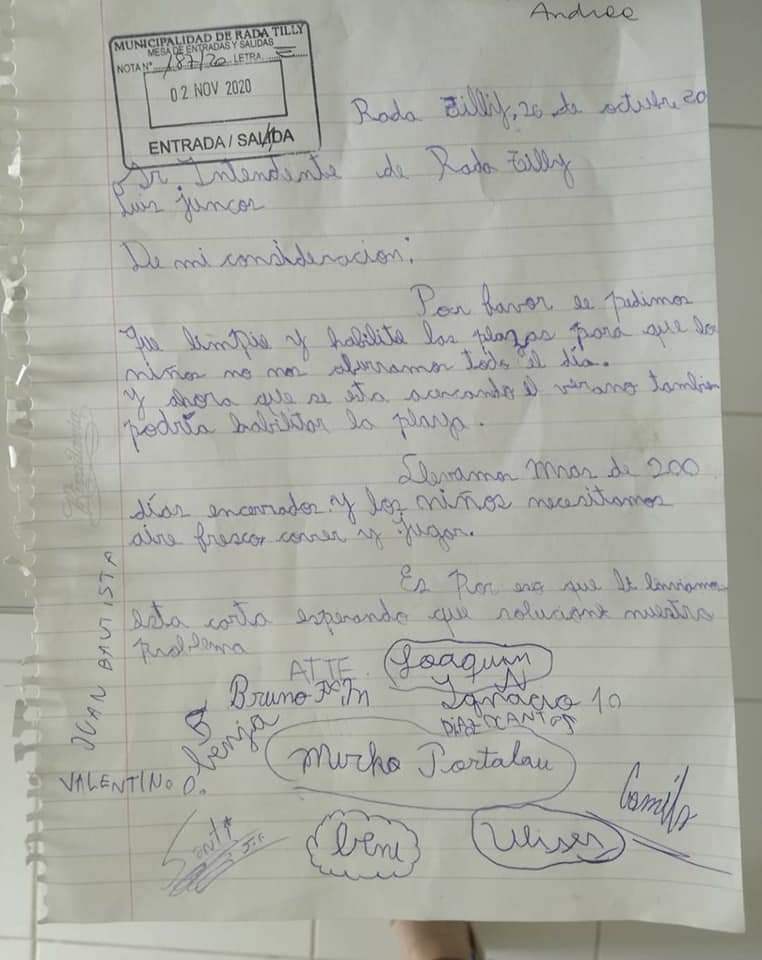 Andrea
MUNICIPALIDAD DE RADA TILLY
MESA DE ENTRADAS Y SALIDAS
NOTA Nº 187/20 LETRA E
02 NOV 2020
ENTRADA / SALIDA
Rada Tilly, 26 de octubre 20
Sr. Intendente de Rada Tilly
Luis Juncos
De mi consideracion:
Por favor le pedimos
que limpie y habilite las plazas para que los
niños no nos aburramos todo el día.
y ahora que se esta acercando el verano tambien
podría habilitar la playa.
Llevamos mas de 200
días encerrados y los niños necesitamos
aire fresco, correr y jugar.
Es por eso que le enviamos
esta carta esperando que solucione nuestro
problema
ATTE.
Joaquin
Bruno
Ignacio 10
DIAZ OCANTOS
benja
JUAN BAUTISTA
VALENTINO O.
Mirko Portalau
Camilo
Santi
beni
Ulises